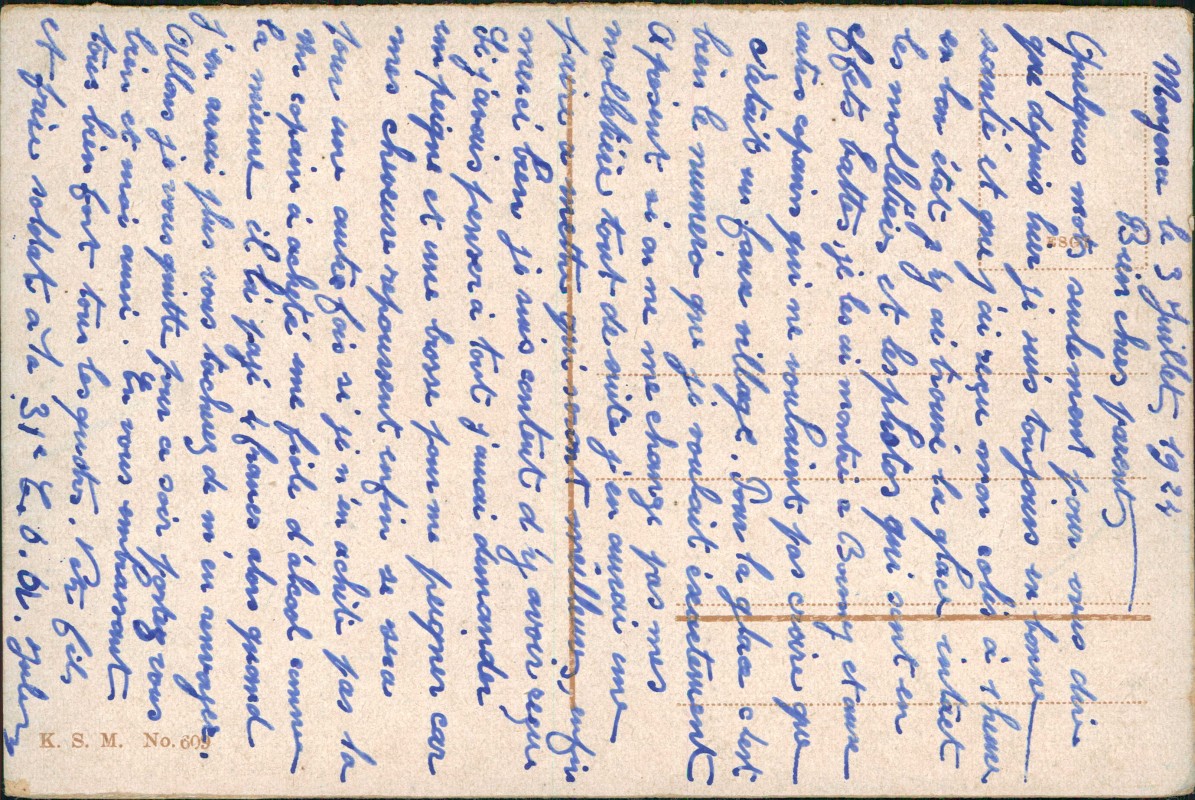 Mayence le 3 Juillet 1924
Bien chers parents
Quelques mots seulement pour vous dire
que depuis hier je suis toujours en bonne
santé et que j'ai reçu mon colis à 1 heure
en bon état j'y ai trouvé la glace intact
les molletiers et les photos qui sont en
effets battes, je les ai montré a Bany et aux
autres copains qui ne voulaient pas croire que
c'était un jaune village. Pour la glace c'est
bien le numero que je voulait exactement
Apresent si on ne me change pas mes
molletiere tout de suite j'en aurai une
paire a mettre qui seront meilleurs, enfin
merci bien je suis content d'y avoir reçu
Si j'avais penser a tout j'aurai demander
un peigne et une brosse pour me peigner car
mes cheveux repoussent enfin se sera
pour une autre fois si je n'en achete pas la
Un copain à acheté une fiole d'alcool comme
la mienne il l'a payé 4 francs alors quand
j'en aurai plus vous tachez de m'en envoyer.
Allons je vous quitte pour ce soir portez vous
bien et moi aussi. En vous embrassant
tous bien fort tous les quatre. Votre fils
et frère soldat à la 31e C. O. A. Jules
K. S. M. No. 609